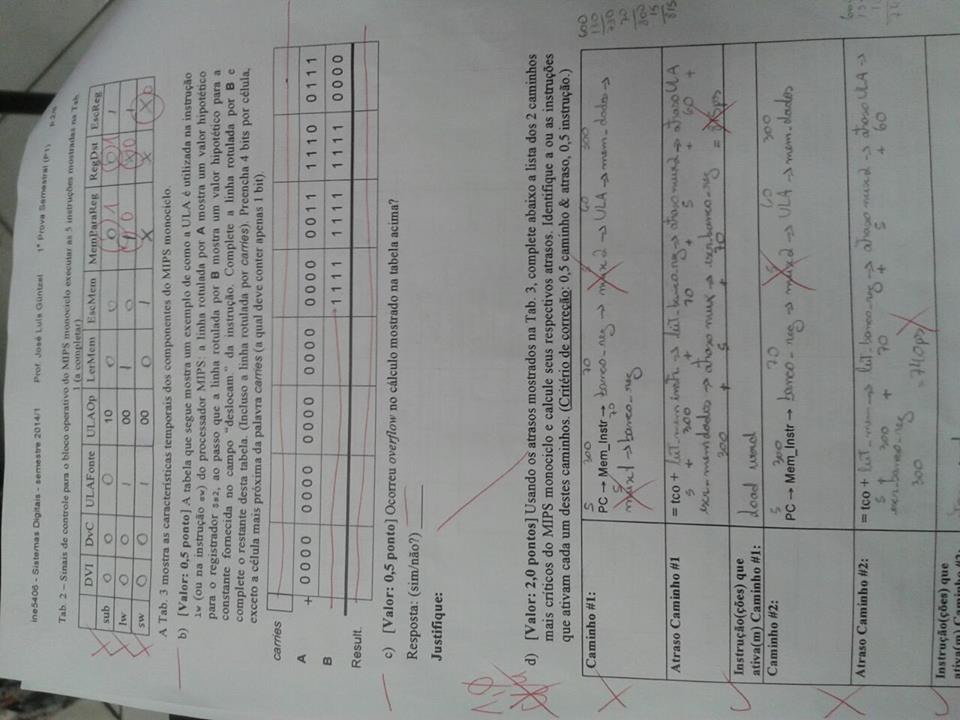 ine5406 - Sistemas Digitais - semestre 2014/1 Prof. José Luís Güntzel 1ª Prova Semestral (P1)
Tab. 2 – Sinais de controle para o bloco operativo do MIPS monociclo executar as 5 instruções mostradas na Tab.
1 (a completar)
DVI DvC ULAFonte ULAOp LerMem EscMem MemParaReg RegDst EscReg
sub 0 0 0 10 0 0 0 1 0 1 1
lw 0 0 1 00 1 0 1 0 x 0 1
sw 0 0 1 00 0 1 x x x 0
A Tab. 3 mostra as características temporais dos componentes do MIPS monociclo.
b) [Valor: 0,5 ponto] A tabela que segue mostra um exemplo de como a ULA é utilizada na instrução
lw (ou na instrução sw) do processador MIPS: a linha rotulada por A mostra um valor hipotético
para o registrador $s2, ao passo que a linha rotulada por B mostra um valor hipotético para a
constante fornecida no campo "deslocam." da instrução. Complete a linha rotulada por B e
complete o restante desta tabela. (Incluso a linha rotulada por carries). Preencha 4 bits por célula,
exceto a célula mais próxima da palavra carries (a qual deve conter apenas 1 bit).
carries
A + 0 0 0 0 0 0 0 0 0 0 0 0 0 0 0 0 0 0 0 0 0 0 1 1 1 1 1 0 0 1 1 1
B 1 1 1 1 1 1 1 1 1 1 1 1 0 0 0 0
Result.
c) [Valor: 0,5 ponto] Ocorreu overflow no cálculo mostrado na tabela acima?
Resposta: (sim/não?) ______
Justifique:
d) [Valor: 2,0 pontos] Usando os atrasos mostrados na Tab. 3, complete abaixo a lista dos 2 caminhos
mais críticos do MIPS monociclo e calcule seus respectivos atrasos. Identifique a ou as instruções
que ativam cada um destes caminhos. (Critério de correção: 0,5 caminho & atraso, 0,5 instrução.)
Caminho #1:
5 300 70 5 60 300
PC → Mem_Instr → banco_reg → mux2 → ULA → mem_dados →
5 70
mux1 → banco_reg
600
130
730
70
800
15
815
Atraso Caminho #1
= tco + leit_mem instr → leit_banco_reg → atraso mux2 → atraso ULA
5 + 300 + 70 + 5 + 60 +
→ atraso mux →
300 + 5 + 70 = 815ps
Instrução(ções) que
ativa(m) Caminho #1:
load word
Caminho #2:
5 300 70 5 60 300
PC → Mem_Instr → banco_reg → mux2 → ULA → mem_dados
Atraso Caminho #2:
= tco + leit_mem → leit_banco_reg → atraso mux2 → atraso ULA →
5 + 300 + 70 + 5 + 60
300 = 740ps
Instrução(ções) que
ativa(m) Caminho #2: